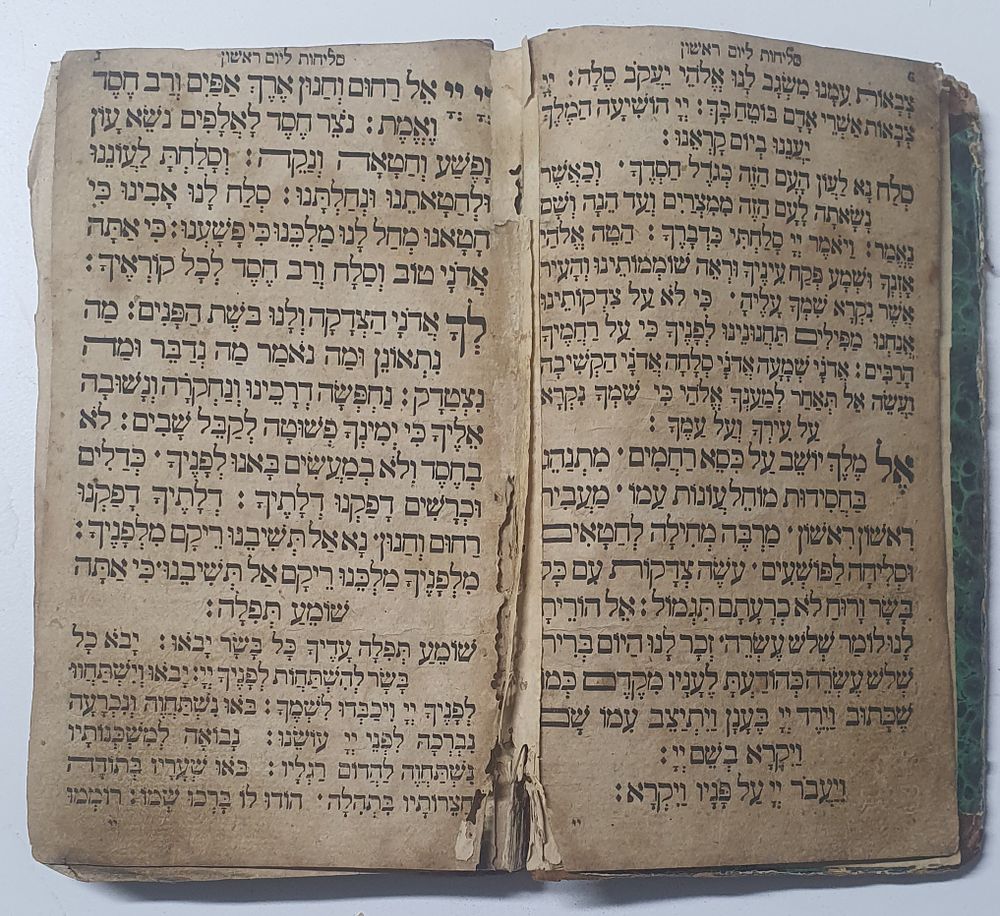 סליחות ליום ראשון
6
צְבָאוֹת עִמָּנוּ מִשְׂגָּב לָנוּ אֱלֹהֵי יַעֲקֹב סֶלָה: יְיָ
צְבָאוֹת אַשְׁרֵי אָדָם בּוֹטֵחַ בָּךְ: יְיָ הוֹשִׁיעָה הַמֶּלֶךְ
יַעֲנֵנוּ בְיוֹם קָרְאֵנוּ:
סְלַח נָא לַעֲוֹן הָעָם הַזֶּה כְּגֹדֶל חַסְדֶּךָ· וְכַאֲשֶׁר
נָשָׂאתָה לָעָם הַזֶּה מִמִּצְרַיִם וְעַד הֵנָּה וְשָׁם
נֶאֱמַר: וַיֹּאמֶר יְיָ סָלַחְתִּי כִּדְבָרֶךָ: הַטֵּה אֱלֹהַי
אָזְנְךָ וּשְׁמָע פְּקַח עֵינֶיךָ וּרְאֵה שׁוֹמְמוֹתֵינוּ וְהָעִיר
אֲשֶׁר נִקְרָא שִׁמְךָ עָלֶיהָ· כִּי לֹא עַל צִדְקוֹתֵינוּ
אֲנַחְנוּ מַפִּילִים תַּחֲנוּנֵינוּ לְפָנֶיךָ כִּי עַל רַחֲמֶיךָ
הָרַבִּים: אֲדֹנָי שְׁמָעָה אֲדֹנָי סְלָחָה אֲדֹנָי הַקְשִׁיבָה
וַעֲשֵׂה אַל תְּאַחַר לְמַעַנְךָ אֱלֹהַי כִּי שִׁמְךָ נִקְרָא
עַל עִירְךָ וְעַל עַמֶּךָ:
אֵל מֶלֶךְ יוֹשֵׁב עַל כִּסֵּא רַחֲמִים· מִתְנַהֵג
בַּחֲסִידוּת מוֹחֵל עֲוֹנוֹת עַמּוֹ· מַעֲבִיר
רִאשׁוֹן רִאשׁוֹן· מַרְבֶּה מְחִילָה לְחַטָּאִים
וּסְלִיחָה לְפוֹשְׁעִים· עֹשֶׂה צְדָקוֹת עִם כָּל
בָּשָׂר וָרוּחַ לֹא כְרָעָתָם תִּגְמוֹל: אֵל הוֹרֵיתָ
לָנוּ לוֹמַר שְׁלֹשׁ עֶשְׂרֵה· זְכָר לָנוּ הַיּוֹם בְּרִית
שְׁלֹשׁ עֶשְׂרֵה כְּהוֹדַעְתָּ לֶעָנָיו מִקֶּדֶם כְּמוֹ
שֶׁכָּתוּב וַיֵּרֶד יְיָ בֶּעָנָן וַיִּתְיַצֵּב עִמּוֹ שָׁם
וַיִּקְרָא בְשֵׁם יְיָ:
וַיַּעֲבֹר יְיָ עַל פָּנָיו וַיִּקְרָא:
יי
סליחות ליום ראשון
יְיָ יְיָ אֵל רַחוּם וְחַנּוּן אֶרֶךְ אַפַּיִם וְרַב חֶסֶד
וֶאֱמֶת: נֹצֵר חֶסֶד לָאֲלָפִים נֹשֵׂא עָוֹן
וָפֶשַׁע וְחַטָּאָה וְנַקֵּה: וְסָלַחְתָּ לַעֲוֹנֵנוּ
וּלְחַטָּאתֵנוּ וּנְחַלְתָּנוּ: סְלַח לָנוּ אָבִינוּ כִּי
חָטָאנוּ מְחַל לָנוּ מַלְכֵּנוּ כִּי פָשָׁעְנוּ: כִּי אַתָּה
אֲדֹנָי טוֹב וְסַלָּח וְרַב חֶסֶד לְכָל קוֹרְאֶיךָ:
לְךָ אֲדֹנָי הַצְּדָקָה וְלָנוּ בֹּשֶׁת הַפָּנִים: מַה
נִתְאוֹנֵן וּמַה נֹּאמַר מַה נְדַבֵּר וּמַה
נִצְטַדָּק: נַחְפְּשָׂה דְרָכֵינוּ וְנַחְקֹרָה וְנָשׁוּבָה
אֵלֶיךָ כִּי יְמִינְךָ פְשׁוּטָה לְקַבֵּל שָׁבִים: לֹא
בְחֶסֶד וְלֹא בְמַעֲשִׂים בָּאנוּ לְפָנֶיךָ· כְּדַלִּים
וּכְרָשִׁים דָּפַקְנוּ דְלָתֶיךָ: דְּלָתֶיךָ דָפַקְנוּ
רַחוּם וְחַנּוּן· נָא אַל תְּשִׁיבֵנוּ רֵיקָם מִלְּפָנֶיךָ:
מִלְּפָנֶיךָ מַלְכֵּנוּ רֵיקָם אַל תְּשִׁיבֵנוּ· כִּי אַתָּה
שׁוֹמֵעַ תְּפִלָּה:
שׁוֹמֵעַ תְּפִלָּה עָדֶיךָ כָּל בָּשָׂר יָבֹאוּ: יָבֹא כָל
בָּשָׂר לְהִשְׁתַּחֲוֹת לְפָנֶיךָ יְיָ: יָבֹאוּ וְיִשְׁתַּחֲווּ
לְפָנֶיךָ יְיָ וִיכַבְּדוּ לִשְׁמֶךָ: בֹּאוּ נִשְׁתַּחֲוֶה וְנִכְרָעָה
נִבְרְכָה לִפְנֵי יְיָ עוֹשֵׂנוּ: נָבוֹאָה לְמִשְׁכְּנוֹתָיו
נִשְׁתַּחֲוֶה לַהֲדוֹם רַגְלָיו: בֹּאוּ שְׁעָרָיו בְּתוֹדָה
חֲצֵרוֹתָיו בִּתְהִלָּה· הוֹדוּ לוֹ בָּרְכוּ שְׁמוֹ: רוֹמְמוּ
יי